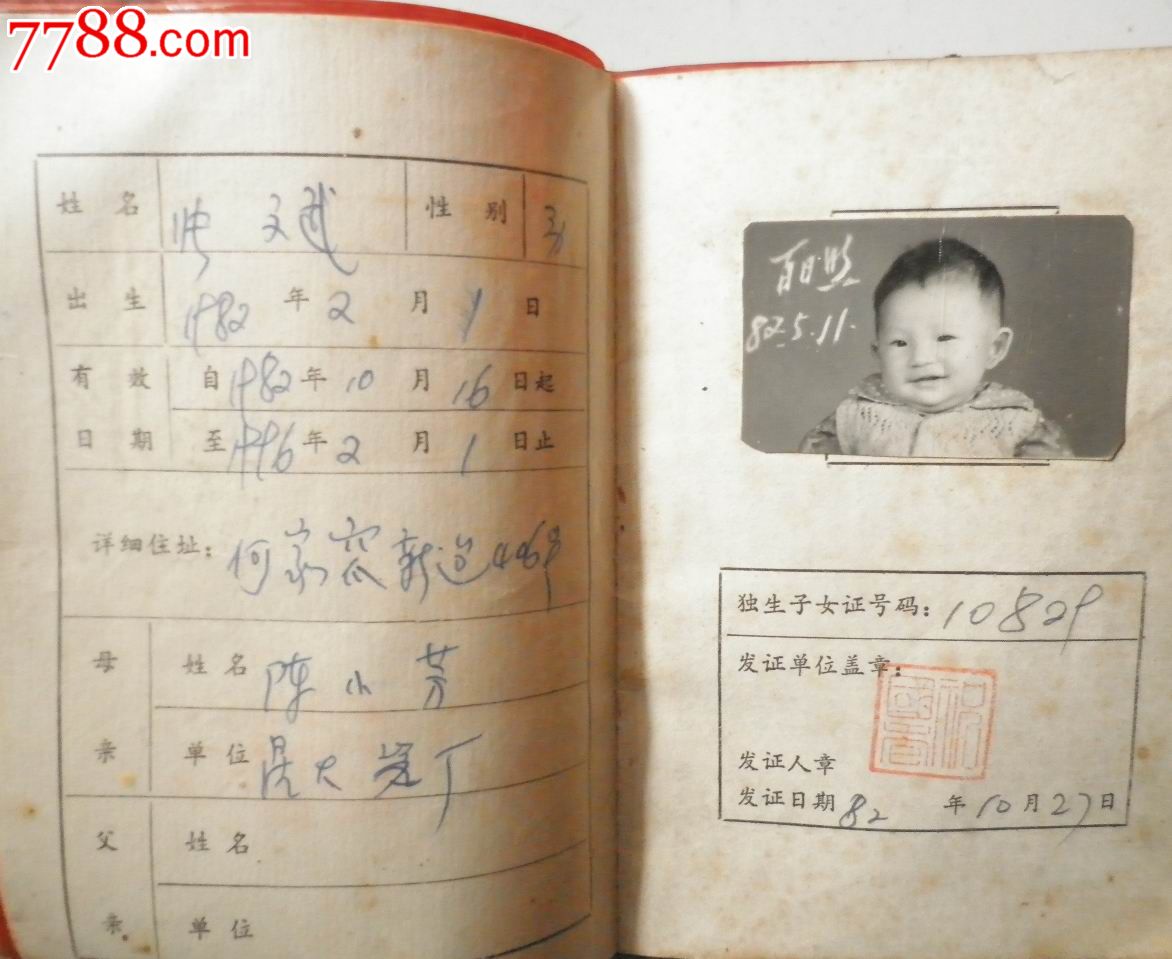 7788.com
姓 名 帅 文斌 性 别 男
出 生 1982 年 2 月 1 日
有 效 自 1982 年 10 月 16 日起
日 期 至 1996 年 2 月 1 日止
详细住址: 何家 新 号
母 姓 名 陈小芳
亲 单 位 大 厂
父 姓 名
亲 单 位
百日照
82.5.11.
独生子女证号码: 10829
发证单位盖章:
发证人章
发证日期 82 年 10 月 27 日